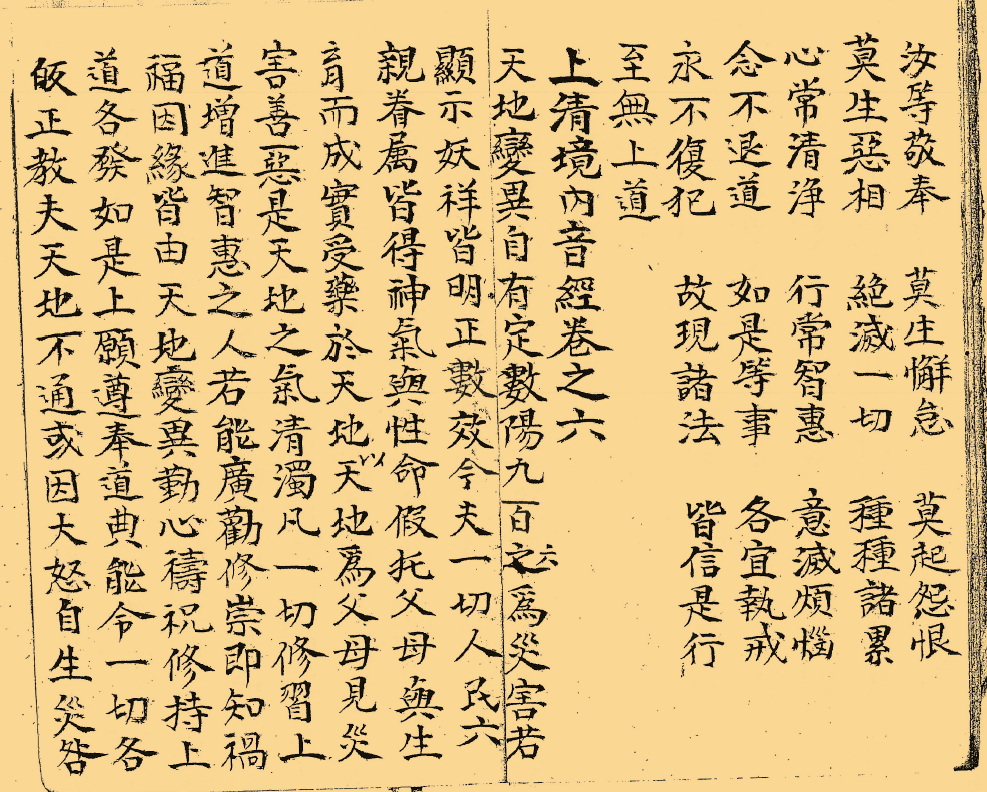 汝等敬奉　莫生懈怠　莫起怨恨
莫生惡相　絶滅一切　種種諸累
心常清浄　行常智惠　意滅煩惱
念不退道　如是等事　各宜執戒
永不復犯　故現諸法　皆信是行
至無上道
上清境內音經卷之六
天地變異自有定數陽九百六之爲災害若
顯示妖祥皆明正數效今夫一切人民六
親眷属皆得神氣與性命假托父母與生
育而成實受藥於天地以天地爲父母見災
害善惡是天地之氣清濁凡一切修習上
道增進智惠之人若能廣勸修崇即知禍
福因緣皆由天地變異勤心禱祝修持上
道各發如是上願遵奉道典能令一切各
皈正教夫天地不通或因大怒自生災咎